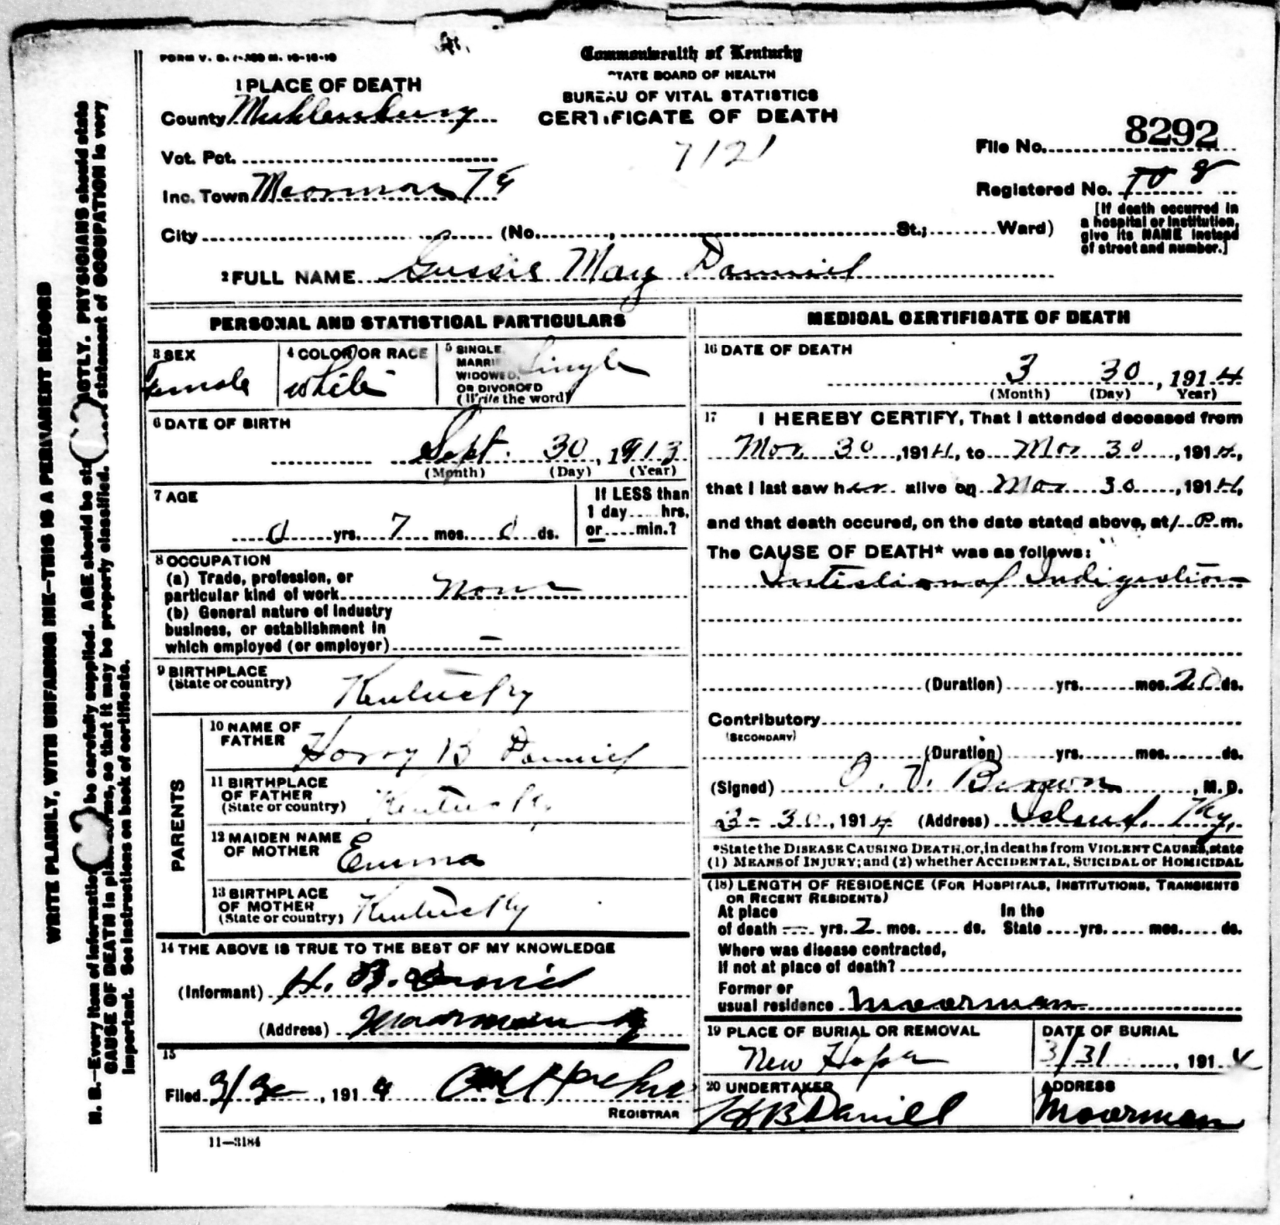 FORM V. S. 1-
Commonwealth of Kentucky
STATE BOARD OF HEALTH
BUREAU OF VITAL STATISTICS
CERTIFICATE OF DEATH
7121
1 PLACE OF DEATH
County Muhlenburg
Vot. Pct.
Inc. Town Moorman
City (No. , St.; Ward)
File No. 8292
Registered No.
[If death occurred in
a hospital or institution,
give its NAME instead
of street and number.]
2 FULL NAME Gussie May Danniel
PERSONAL AND STATISTICAL PARTICULARS
3 SEX
Female
4 COLOR OR RACE
white
5 SINGLE,
MARRIED
WIDOWED,
OR DIVORCED
(Write the word)
Single
6 DATE OF BIRTH
Sept. 30, 1913
(Month) (Day) (Year)
7 AGE
0 yrs. 7 mos. 0 ds.
If LESS than
1 day hrs.
or min.?
8 OCCUPATION
(a) Trade, profession, or
particular kind of work None
(b) General nature of industry
business, or establishment in
which employed (or employer) –
9 BIRTHPLACE
(State or country) Kentucky
PARENTS
10 NAME OF
FATHER Harry B Danniel
11 BIRTHPLACE
OF FATHER
(State or country) Kentucky
12 MAIDEN NAME
OF MOTHER Emma
13 BIRTHPLACE
OF MOTHER
(State or country) Kentucky
14 THE ABOVE IS TRUE TO THE BEST OF MY KNOWLEDGE
(Informant) H. B. Daniel
(Address) Moorman Ky
15
Filed 3/30, 1914
REGISTRAR
11—3184
MEDICAL CERTIFICATE OF DEATH
16 DATE OF DEATH
3 30, 1914
(Month) (Day) Year)
17 I HEREBY CERTIFY, That I attended deceased from
Mar 30, 1914, to Mar 30 1914,
that I last saw her alive on Mar 30, 1914,
and that death occured, on the date stated above, at 1 P. m.
The CAUSE OF DEATH* was as follows:
Indigestion
(Duration) yrs. mos. 20 ds.
Contributory
(SECONDARY)
(Duration) yrs. mos. ds.
(Signed) O. V. Brown, M. D.
3-30, 1914 (Address) Island, Ky,
*State the DISEASE CAUSING DEATH, or, in deaths from VIOLENT CAUSES, state
(1) MEANS OF INJURY; and (2) whether ACCIDENTAL, SUICIDAL or HOMICIDAL
(18) LENGTH OF RESIDENCE (FOR HOSPITALS, INSTITUTIONS, TRANSIENTS
OR RECENT RESIDENTS)
At place
of death — yrs. 2 mos. ds.
In the
State yrs. mos. ds.
Where was disease contracted,
If not at place of death?
Former or
usual residence Moorman
19 PLACE OF BURIAL OR REMOVAL
New Hope
DATE OF BURIAL
3/31, 1914
20 UNDERTAKER
H B Daniell
ADDRESS
Moorman
WRITE PLAINLY, WITH UNFADING INK—THIS IS A PERMANENT RECORD
N. B.—Every item of information be carefully supplied. AGE should be st CTLY. PHYSICIANS should state
CAUSE OF DEATH in plain terms, so that it may be properly classified. statement of OCCUPATION is very
important. See instructions on back of certificate.